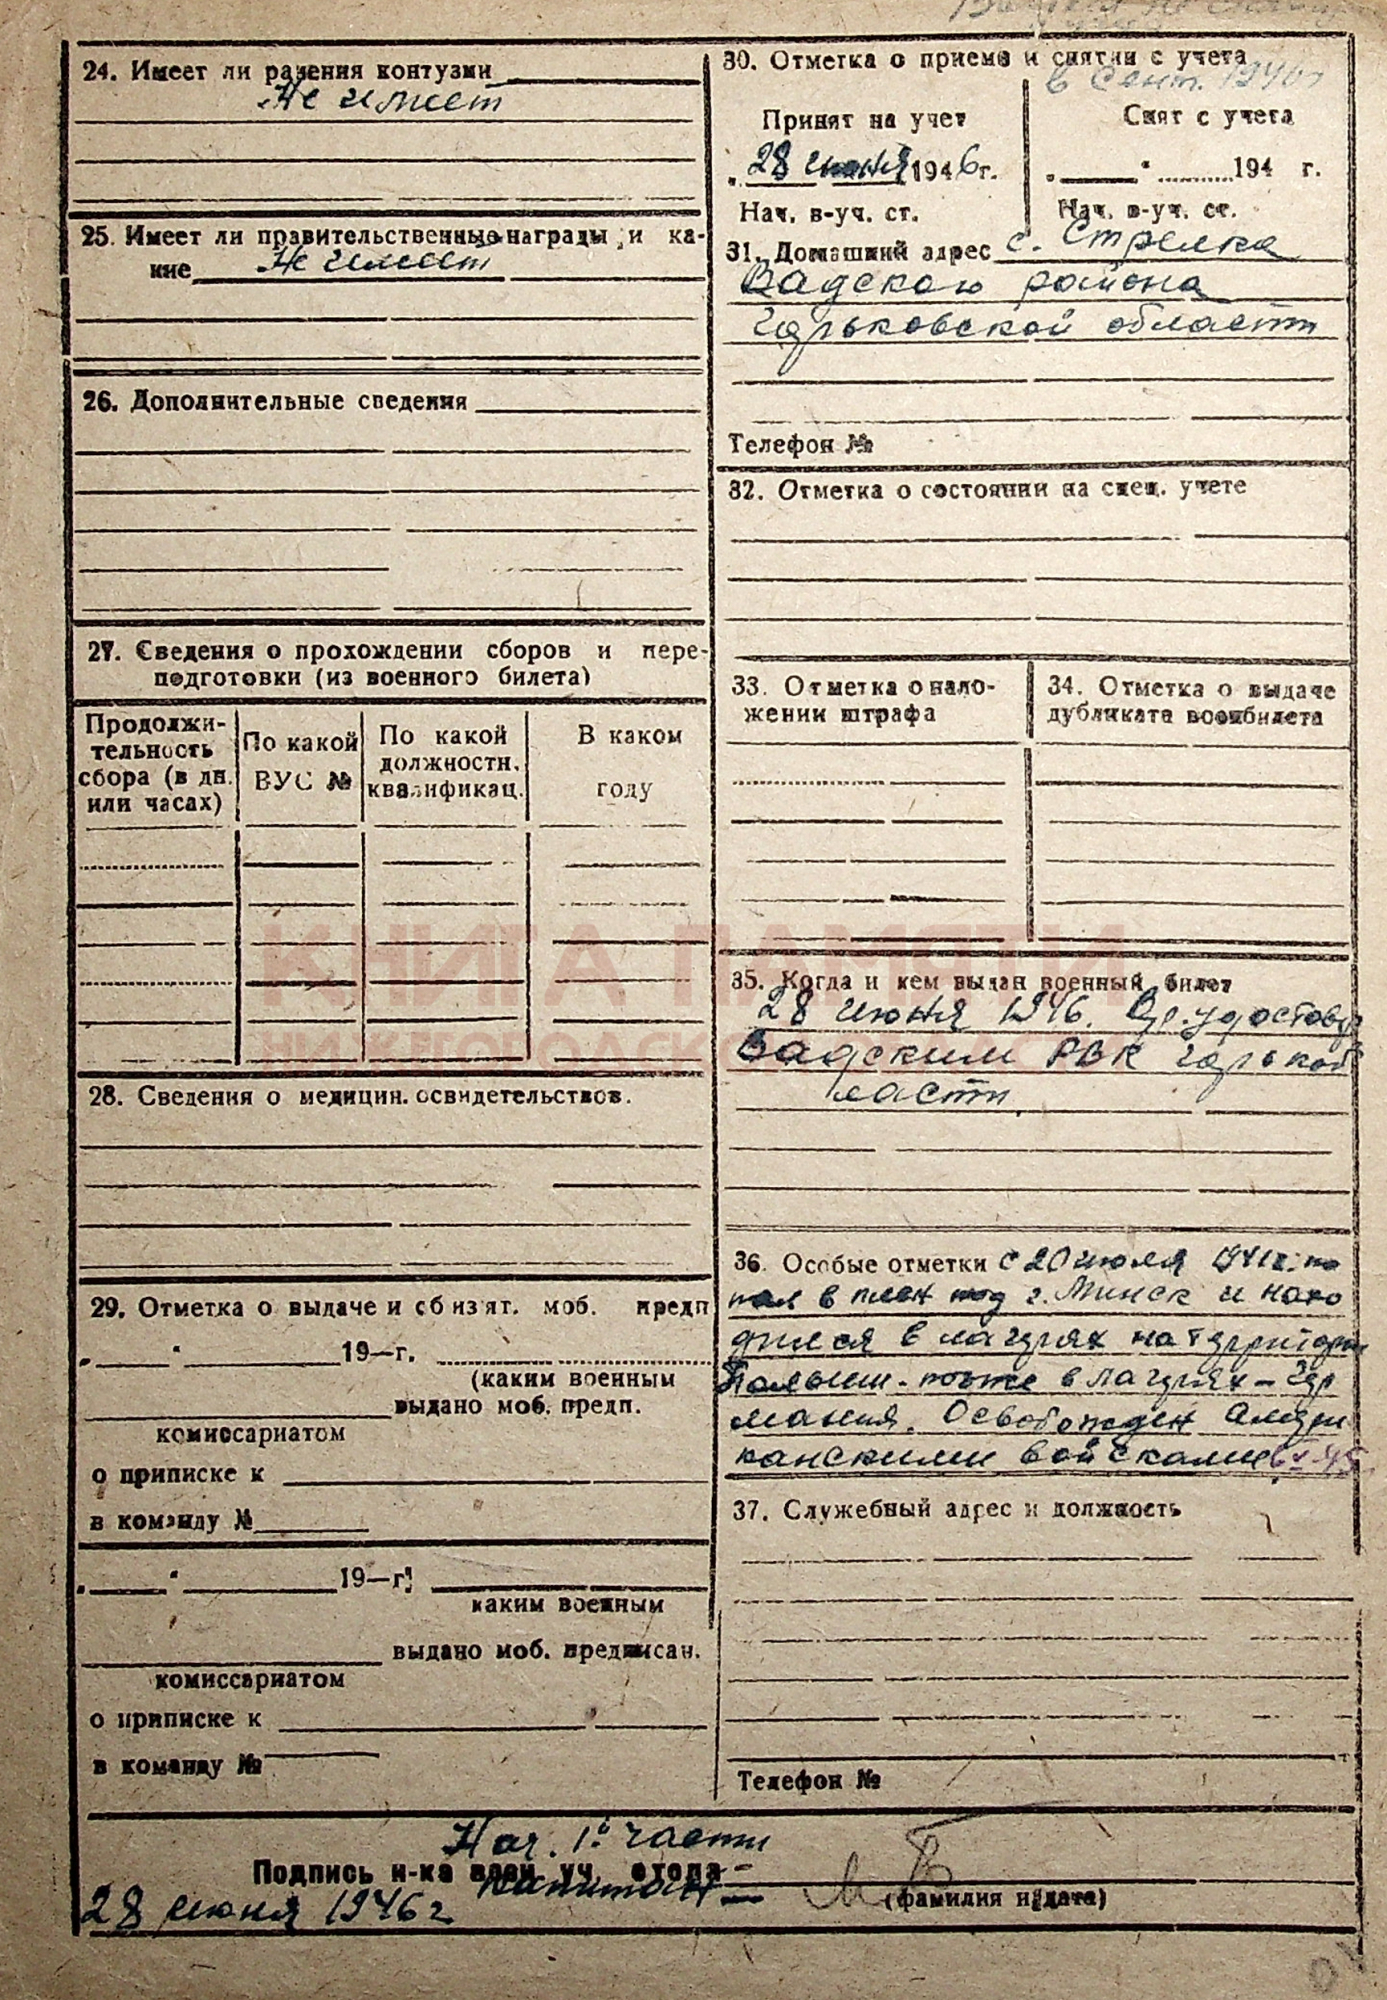 24. Имеет ли ранения контузии
Не имеет
25. Имеет ли правительственные награды и ка-
кие Не имеет
26. Дополнительные сведения
27. Сведения о прохождении сборов и пере-
подготовки (из военного билета)
Продолжи-
тельность
сбора (в дн.
или часах)
По какой
ВУС №
По какой
должностн.
квалификац.
В каком
году
28. Сведения о медицин. освидетельствов.
29. Отметка о выдаче и об из'ят. моб. предп
19—г.
(каким военным
выдано моб. предп.
комиссариатом
о приписке к
в команду №
19—г.
каким военным
выдано моб. предписан.
комиссариатом
о приписке к
в команду №
30. Отметка о приеме и снятии с учета
в Сент. 1946г
Принят на учет
28 июня 1946г.
Нач. в-уч. ст.
Снят с учета
194 г.
Нач. в-уч. ст.
31. Домашний адрес с. Стрелка
Вадского района
Горьковской области
Телефон №
32. Отметка о состоянии на спец. учете
33. Отметка о нало-
жении штрафа
34. Отметка о выдаче
дубликата воембилета
КНИГА ПАМЯТИ
НИЖЕГОРОДСКОЙ ОБЛАСТИ
35. Когда и кем выдан военный билет
28 июня 1946. Вр. удостовер
Вадским РВК Горьков
ласти
36. Особые отметки с 20 июля 1941г. по
пал в плен под г. Минск и нахо
дился в лагерях на территори
Польши - позже в лагерях - Гер
мания. Освобожден Амери
канскими войсками
37. Служебный адрес и должность
Телефон №
Нач. 1й части
Подпись н-ка воен уч. стола
капитан
28 июня 1946г
(фамилия и дата)